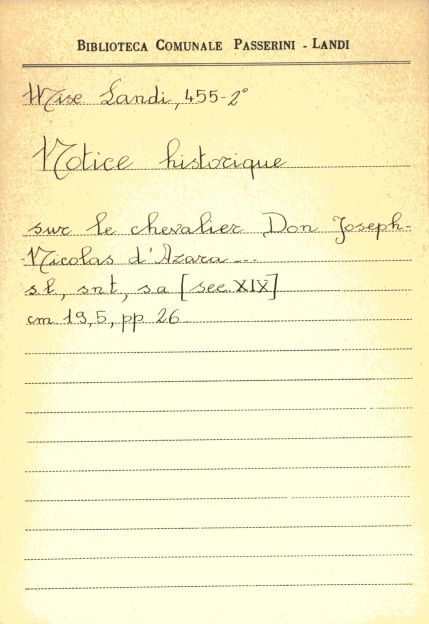 BIBLIOTECA COMUNALE PASSERINI - LANDI
Misc Landi, 455-2°
Notice historique
sur le chevalier Don Joseph-
-Nicolas d'Azara ...
s.l, snt, sa [sec. XIX]
cm 19,5, pp 26